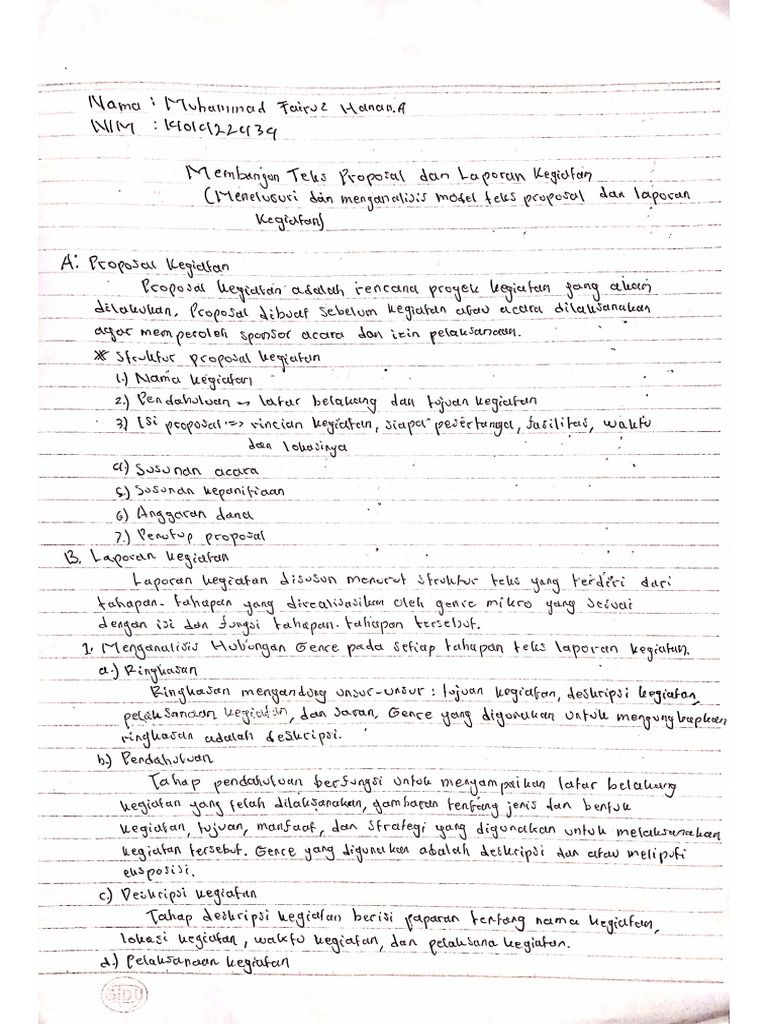 Nama : Muhammad Fairuz Hanan.A
NIM : K4122439
Membangun Teks Proposal dan Laporan Kegiatan
(Menelusuri dan menganalisis model teks proposal dan laporan
Kegiatan)
A. Proposal Kegiatan
Proposal kegiatan adalah rencana proyek kegiatan yang akan
dilakukan. Proposal dibuat sebelum kegiatan atau acara dilaksanakan
agar memperoleh sponsor acara dan izin pelaksanaan.
* Struktur proposal kegiatan
1.) Nama kegiatan
2.) Pendahuluan → latar belakang dan tujuan kegiatan
3.) Isi proposal => rincian kegiatan, siapa pesertanya, fasilitas, waktu
dan lokasinya
4) Susunan acara
5.) Susunan kepanitiaan
6) Anggaran dana
7.) Penutup proposal
B. Laporan kegiatan
Laporan kegiatan disusun menurut struktur teks yang terdiri dari
tahapan-tahapan yang direalisasikan oleh genre mikro yang sesuai
dengan isi dan fungsi tahapan-tahapan tersebut.
1. Menganalisis Hubungan Genre pada setiap tahapan teks laporan kegiatan.
a.) Ringkasan
Ringkasan mengandung unsur-unsur : tujuan kegiatan, deskripsi kegiatan,
pelaksanaan kegiatan, dan saran. Genre yang digunakan untuk mengungkapkan
ringkasan adalah deskripsi.
b.) Pendahuluan
Tahap pendahuluan berfungsi untuk menyampaikan latar belakang
kegiatan yang telah dilaksanakan, gambaran tentang jenis dan bentuk
kegiatan, tujuan, manfaat, dan strategi yang digunakan untuk melaksanakan
kegiatan tersebut. Genre yang digunakan adalah deskripsi dan atau meliputi
eksposisi.
c.) Deskripsi kegiatan
Tahap deskripsi kegiatan berisi paparan tentang nama kegiatan,
lokasi kegiatan, waktu kegiatan, dan pelaksana kegiatan.
d.) Pelaksanaan kegiatan
SIDU